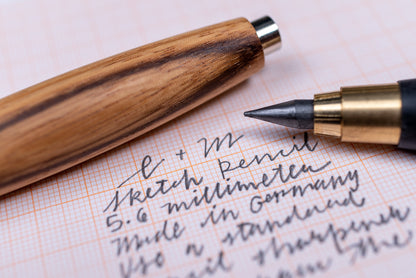 e + m
sketch pencil
5.6 millimeter
Made in Germany
Use a standard
pencil sharpener